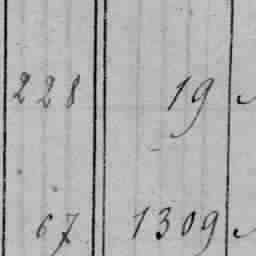 228 19
67 1309